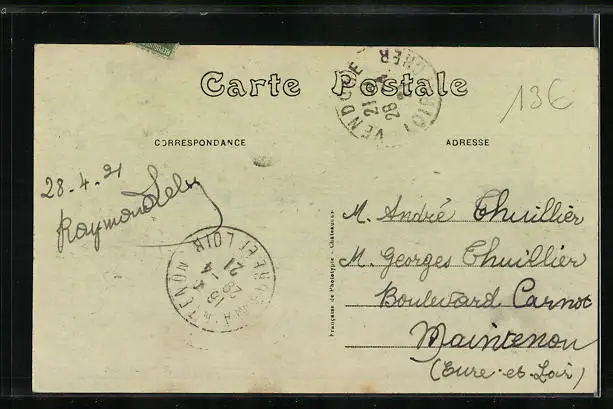 Carte Postale
13€
CORRESPONDANCE
ADRESSE
28-4-21
Raymond
VENDOME
LOIR-&-CHER
21
28 - 4
M. André Thuillier
M. Georges Thuillier
Boulevard Carnot
Maintenon
(Eure-et-Loir)
MAINTENON
EURE-ET-LOIR
28 - 4
21
Française de Phototypie - Châteaudun